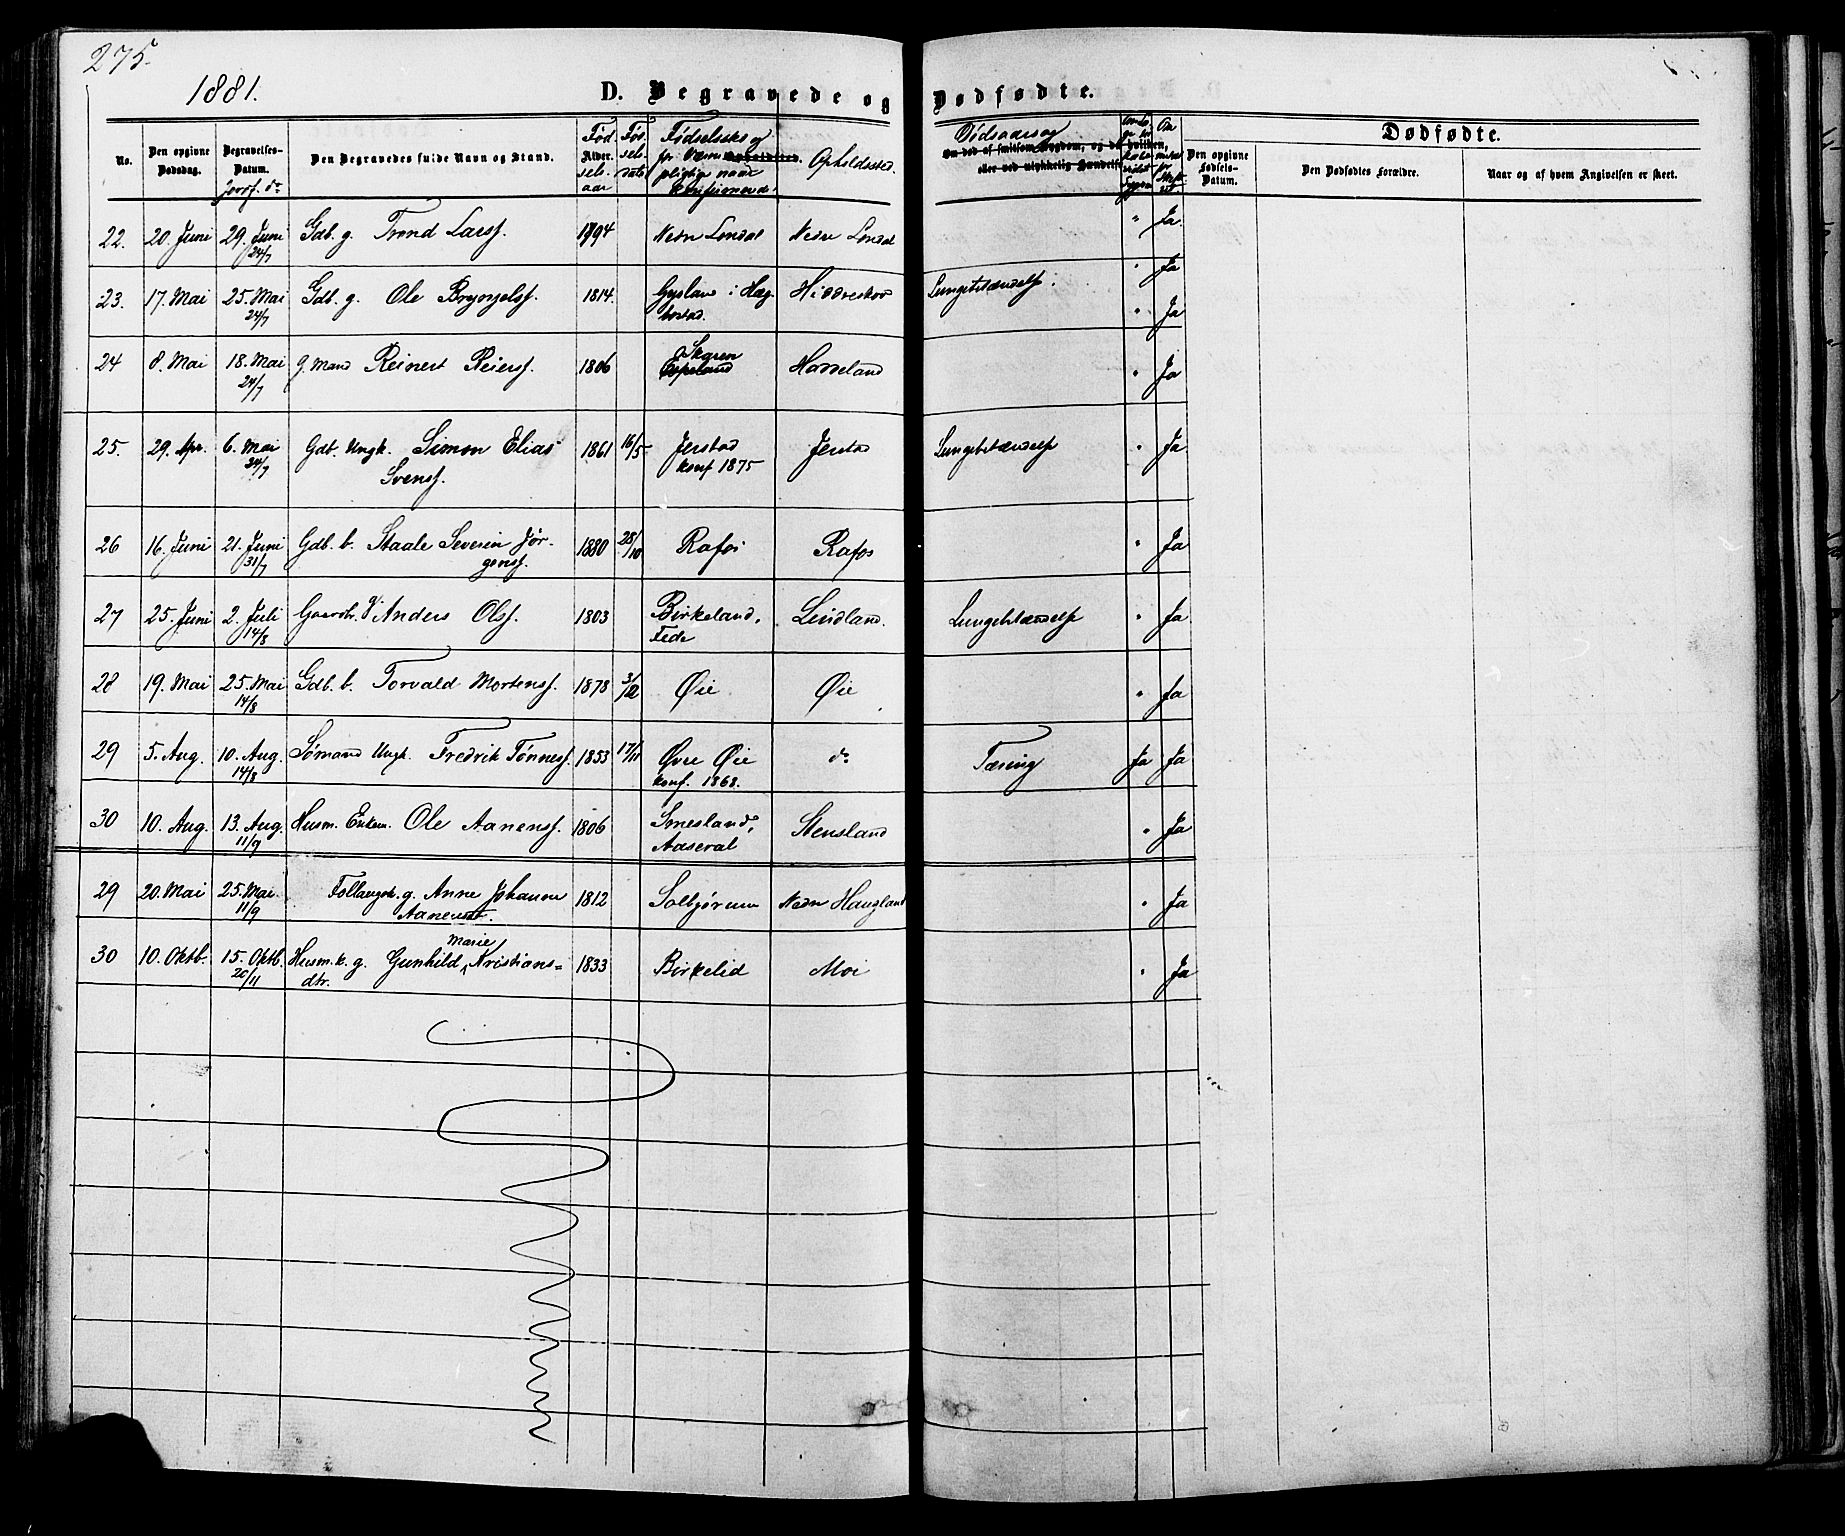 275.
1881.
D. Begravede og Dødfødte.
No.
Den opgivne Dødsdag.
Begravelses-Datum.
Jordf. do
Den Begravedes fulde Navn og Stand.
Fødselsaar
Fødselsdato
Fødselssted og for Værnepligtige naar konfirmerede
Opholdssted.
Dødsaarsag
Om død af smitsom Sygdom, og da hvilken, eller ved ulykkelig Hændelse
Dødfødte.
Den opgivne Fødsels-Datum.
Den Dødfødtes Forældre.
Naar og af hvem Angivelsen er skeet.
22. 20. Juni 29. Juni 24/7 Gdb. g. Trond Larsf. 1794 Nedre Londal Nedre Londal " Ja.
23. 17. Mai 25. Mai 24/7 Gdb. g. Ole Bryngelsf. 1814. Gysland i Hægbostad. Hiddreskov Lungebetændelse. " Ja " Ja
24 8. Mai 18. Mai 24/7 g. Mand Reinert Reiersf. 1806 Skaren Espeland Hadeland " Ja
25. 29. Apr. 6. Mai 24/7 Gdb. Ungk. Simon Elias Svensf. 1861 16/5 Jerstad konf 1875 Jerstad Lungebetændelse " Ja
26 16. Juni 21. Juni 31/7 Gdb. b. Staale Severin Jørgensf. 1880 28/10 Rafos Rafos " Ja
27 25. Juni 2. Juli 14/8 Gaardbr. g. Anders Olsf. 1803 Birkeland, Fede Lindland. Lungebetændelse " Ja
28 19. Mai 25. Mai 14/8 Gdb. b. Torvald Mortensf. 1878 3/12 Øie Øie " Ja
29 5. Aug. 10. Aug. 14/8 Sømand Ungk. Fredrik Tønnesf. 1853 17/11 Øvre Øie konf. 1868. do Tæring Ja Ja
30 10. Aug. 13. Aug. 11/9 Husm. Enkem. Ole Aanensf. 1806 Smesland, Aaseral Stensland " Ja
29 20. Mai 25. Mai. 11/9 Follaugsk. g. Anne Johanne Aanensdt. 1812 Solbjørum Nedre Haugland " Ja
30 10. Oktb. 15. Oktb. 20/11 Husm. k. g. Gunhild Marie Kristiansdtr. 1833 Birkelid Moi " Ja